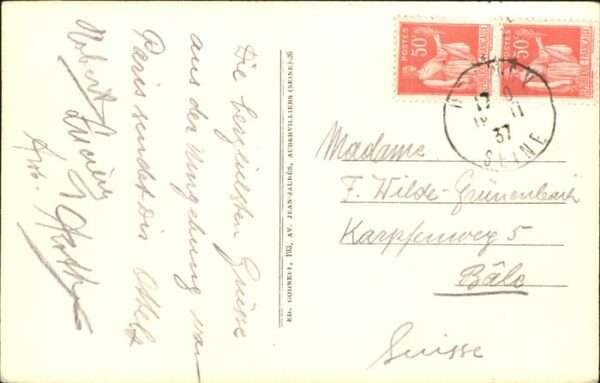 Die herzlichsten Grüsse
aus der Umgebung von
Paris sendet dir
Robert
ED. GODNEFF, 193, AV. JEAN-JAURÈS, AUBERVILLIERS (SEINE)
POSTES
50c
POSTES
50c
17
37
SEINE
Madame
F. Wilde-Grünenbach
Karpfenweg 5
Bâle
Suisse